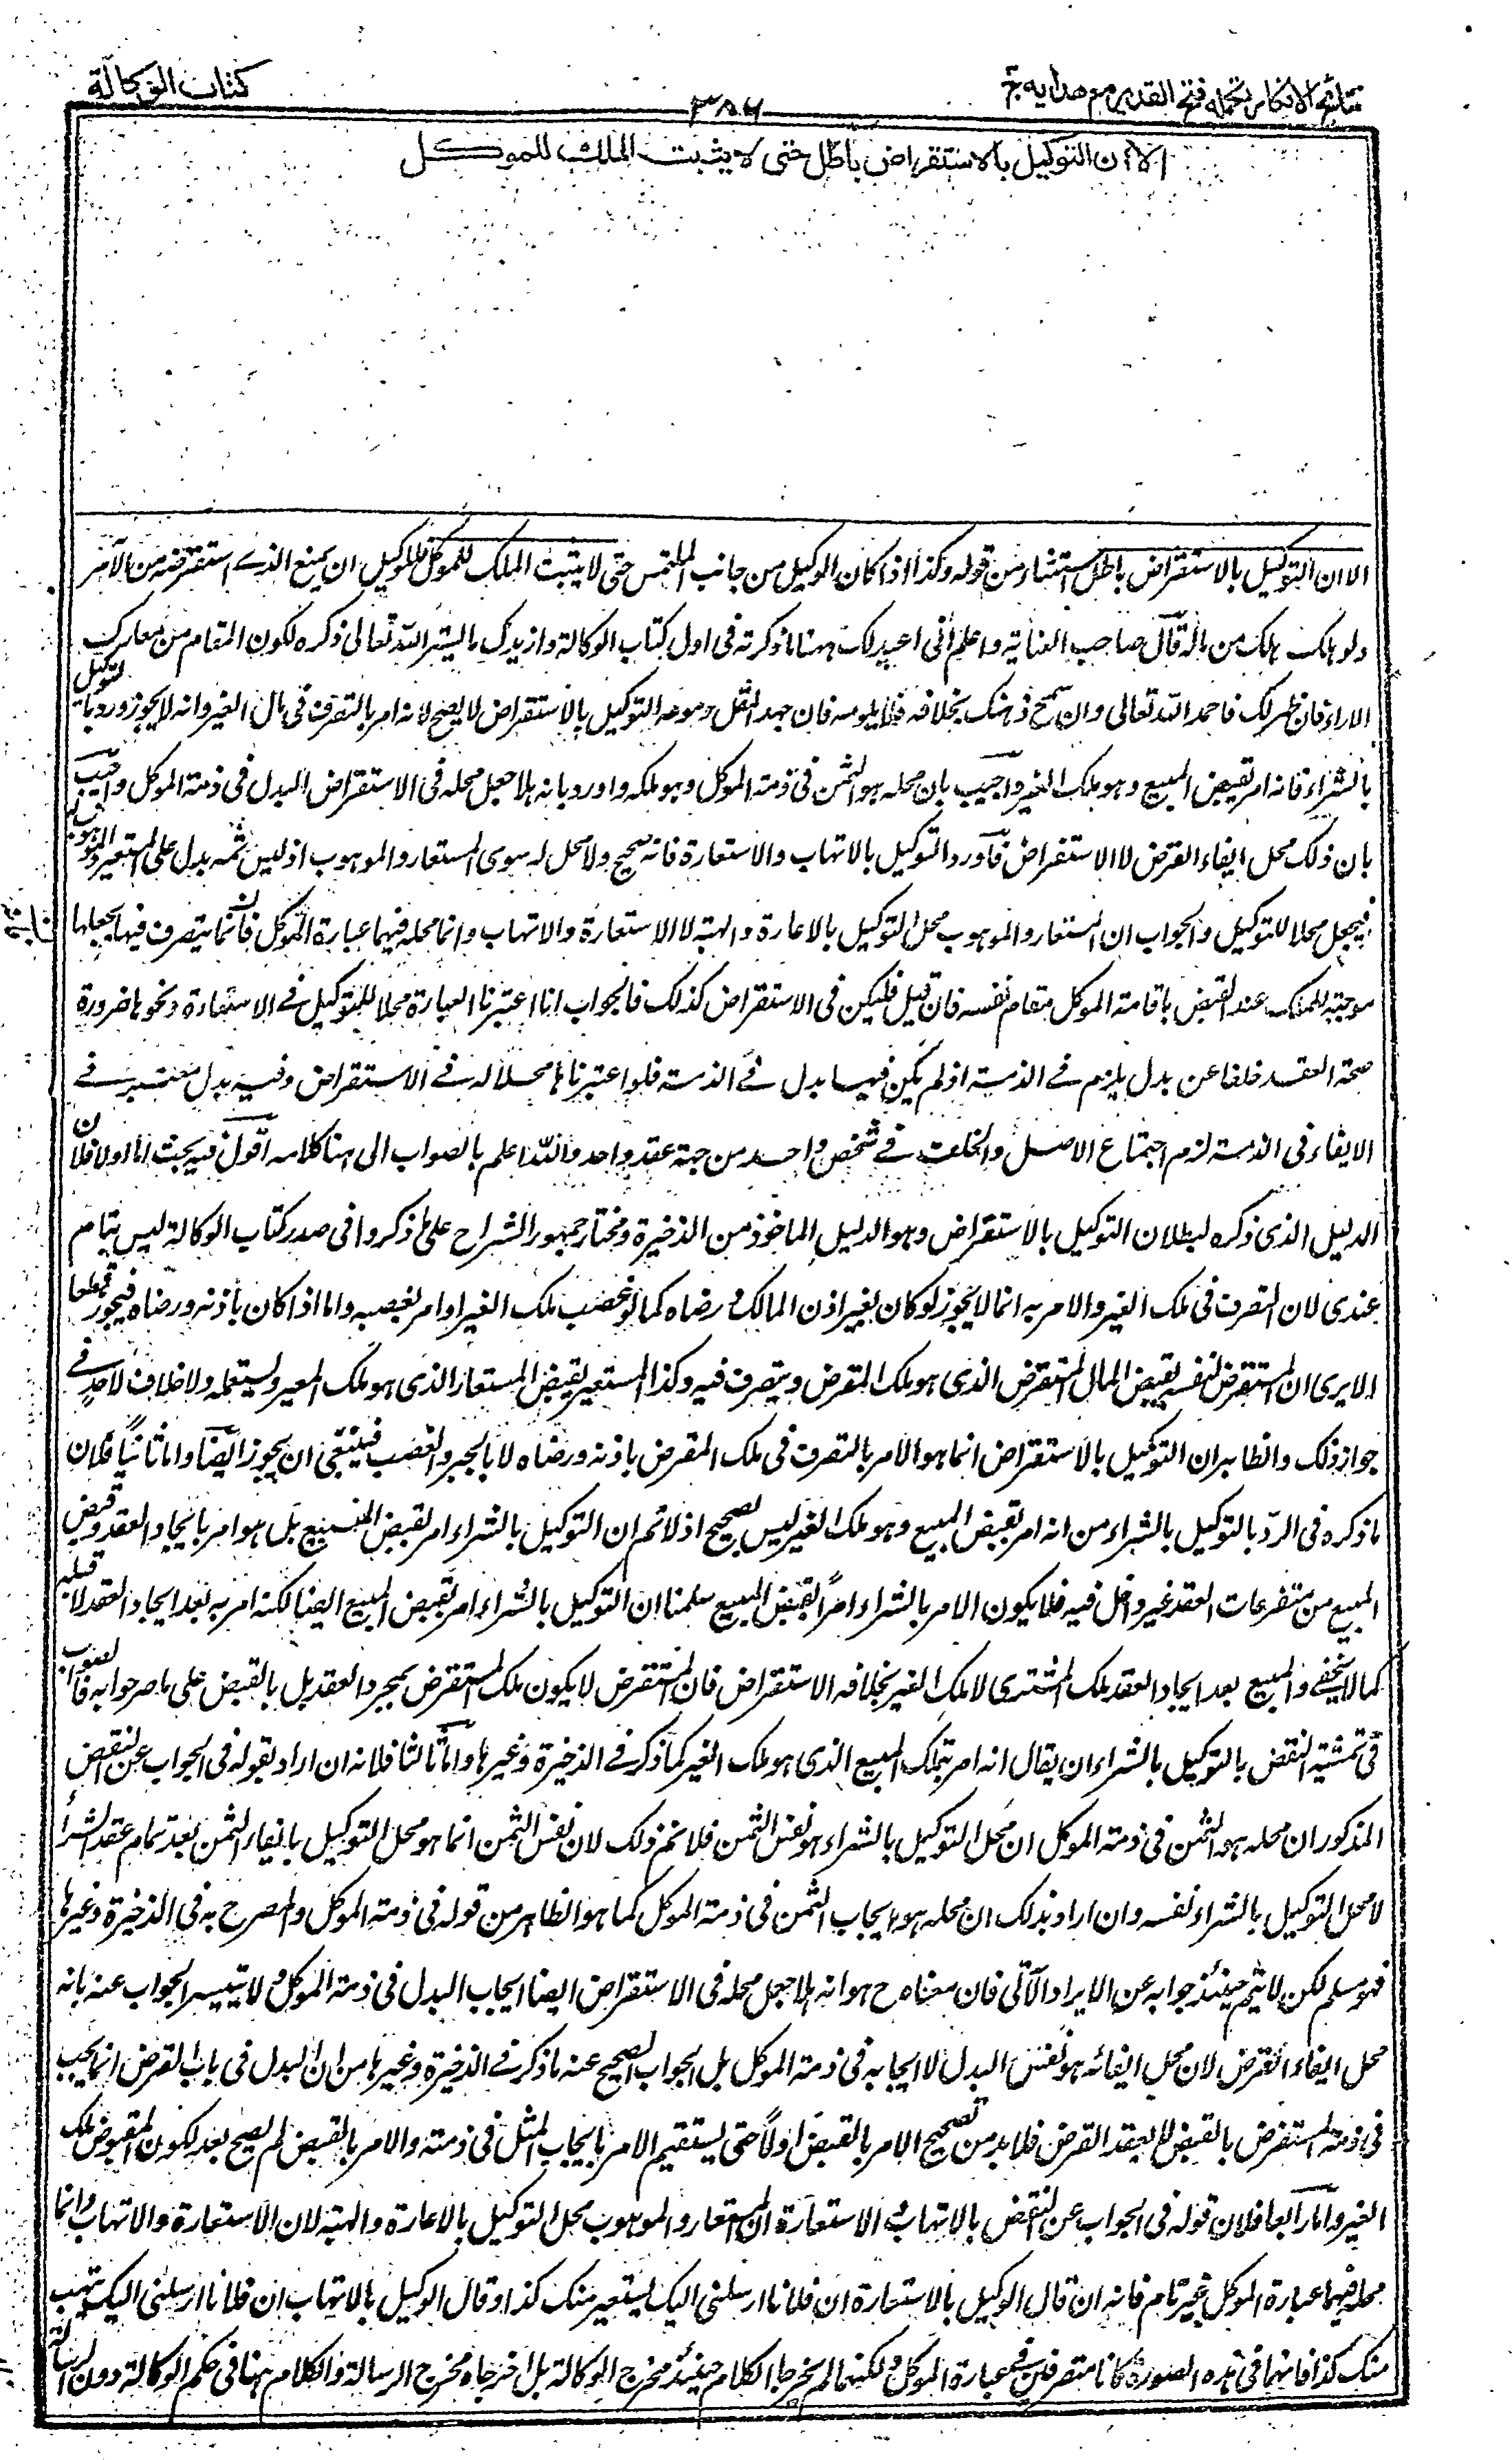 نتائج الافكار تكملة فتح القدير مع هداية ج
٣٨٦
كتاب الوكالة
الا ان التوكيل بالاستقراض باطل حتى لا يثبت الملك للموكل
الا ان التوكيل بالاستقراض باطل استثناء من قوله وكذا اذا كان الوكيل من جانب الملتمس حتى لا يثبت الملك للموكل فللوكيل ان يمنع الذي استقرضه من الآمر
ولو هلك هلك من ماله قال صاحب العناية واعلم أني اعيد لك ههنا ما ذكرته في اول كتاب الوكالة وازيدك ما يسر الله تعالى ذكره لكون المقام من معارك
الاراء فان ظهر لك فاحمد الله تعالى وان سمح ذهنك بخلافه فلا لوم فان جهد المقل دموعه التوكيل بالاستقراض لا يصح لانه امر بالتصرف في مال الغير وانه لا يجوز ورد بالتوكيل
بالشراء فانه امر بقبض المبيع وهو ملك الغير واجيب بان محله هو الثمن في ذمة الموكل وهو ملكه واورد بانه هلا جعل محله في الاستقراض البدل في ذمة الموكل واجيب
بان ذلك محل ايفاء القرض لا الاستقراض فاورد التوكيل بالاتهاب والاستعارة فانه صحيح ولا محل له سوى المستعار والموهوب اذ ليس ثمه بدل على المستعير والموهوب له
فيجعل محلا للتوكيل والجواب ان المستعار والموهوب محل التوكيل بالاعارة والهبة لا الاستعارة والاتهاب وانما محله فيهما عبارة الموكل فانه انما يتصرف فيها بجعلها
موجبة للملك عند القبض باقامة الموكل مقام نفسه فان قيل فليكن في الاستقراض كذلك فالجواب انا اعتبرنا العبارة محلا للتوكيل في الاستعارة ونحوها ضرورة
صحة العقد خلفا عن بدل يلزم في الذمة اذ لم يكن فيها بدل في الذمة فلو اعتبرناها محلا له في الاستقراض وفيه بدل معتبر في
الايفاء في الذمة لزم اجتماع الاصل والخلف في شخص واحد من جهة عقد واحد والله اعلم بالصواب الى هنا كلامه اقول فيه بحث اما اولا فلان
الدليل الذى ذكره لبطلان التوكيل بالاستقراض وهو الدليل الماخوذ من الذخيرة ومختار جمهور الشراح على ما ذكروا في صدر كتاب الوكالة ليس بتام
عندى لان التصرف في ملك الغير والامر به انما لا يجوز لو كان بغير اذن المالك ورضاه كما لو غصب ملك الغير او امر بغصبه واما اذا كان باذنه ورضاه فيجوز قطعا
الا يرى ان المستقرض لنفسه يقبض المال المستقرض الذى هو ملك المقرض ويتصرف فيه وكذا المستعير يقبض المستعار الذى هو ملك المعير ويستعمله ولا خلاف لاحد في
جواز ذلك والظاهر ان التوكيل بالاستقراض انما هو الامر بالتصرف في ملك المقرض باذنه ورضاه لا بالجبر والغصب فينبغى ان يجوز ايضا واما ثانيا فلان
ما ذكره في الرد بالتوكيل بالشراء من انه امر بقبض المبيع وهو ملك الغير ليس بصحيح اذ لا نم ان التوكيل بالشراء امر بقبض المبيع بل هو امر بايجاد العقد وقبض
المبيع من متفرعات العقد غير داخل فيه فلا يكون الامر بالشراء امرا بقبض المبيع سلمنا ان التوكيل بالشراء امر بقبض المبيع ايضا لكنه امر به بعد ايجاد العقد لا قبله
كما لا يخفى والمبيع بعد ايجاد العقد ملك المشترى لا ملك الغير بخلاف الاستقراض فان المستقرض لا يكون ملك المستقرض بمجرد العقد بل بالقبض على ما صرحوا به فالصواب
في تمشية النقض بالتوكيل بالشراء ان يقال انه امر بتملك المبيع الذى هو ملك الغير كما ذكر في الذخيرة وغيرها واما ثالثا فلانه ان اراد بقوله في الجواب عن النقض
المذكور ان محله هو الثمن في ذمة الموكل ان محل التوكيل بالشراء هو نفس الثمن فلا نم ذلك لان نفس الثمن انما هو محل التوكيل بايفاء الثمن بعد تمام عقد الشراء
لا محل التوكيل بالشراء نفسه وان اراد بذلك ان محله هو ايجاب الثمن في ذمة الموكل كما هو الظاهر من قوله في ذمة الموكل والمصرح به في الذخيرة وغيرها
فهو مسلم لكن لا يتم حينئذ جوابه عن الايراد الآتى فان معناه ح هو انه هلا جعل محله في الاستقراض ايضا ايجاب البدل في ذمة الموكل ولا يتيسر الجواب عنه بانه
محل ايفاء القرض لان محل ايفائه هو نفس البدل لا ايجابه في ذمة الموكل بل الجواب الصحيح عنه ما ذكر في الذخيرة وغيرها من ان البدل في باب القرض انما يجب
في ذمة المستقرض بالقبض لا بعقد القرض فلا بد من تصحيح الامر بالقبض اولا حتى يستقيم الامر بايجاب المثل في ذمته والامر بالقبض لم يصح بعد لكون المقبوض ملك
الغير واما رابعا فلان قوله في الجواب عن النقض بالاتهاب والاستعارة ان المستعار والموهوب محل التوكيل بالاعارة والهبة لا الاستعارة والاتهاب وانما
محله فيهما عبارة الموكل غير تام فانه ان قال الوكيل بالاستعارة ان فلانا ارسلنى اليك يستعير منك كذا وقال الوكيل بالاتهاب ان فلانا ارسلنى اليك يتهب
منك كذا فانهما في هذه الصورة كانا متصرفين في عبارة الموكل ولكنهما لم يخرجا الكلام حينئذ مخرج الوكالة بل اخرجاه مخرج الرسالة والكلام ههنا في حكم الوكالة دون الرسالة